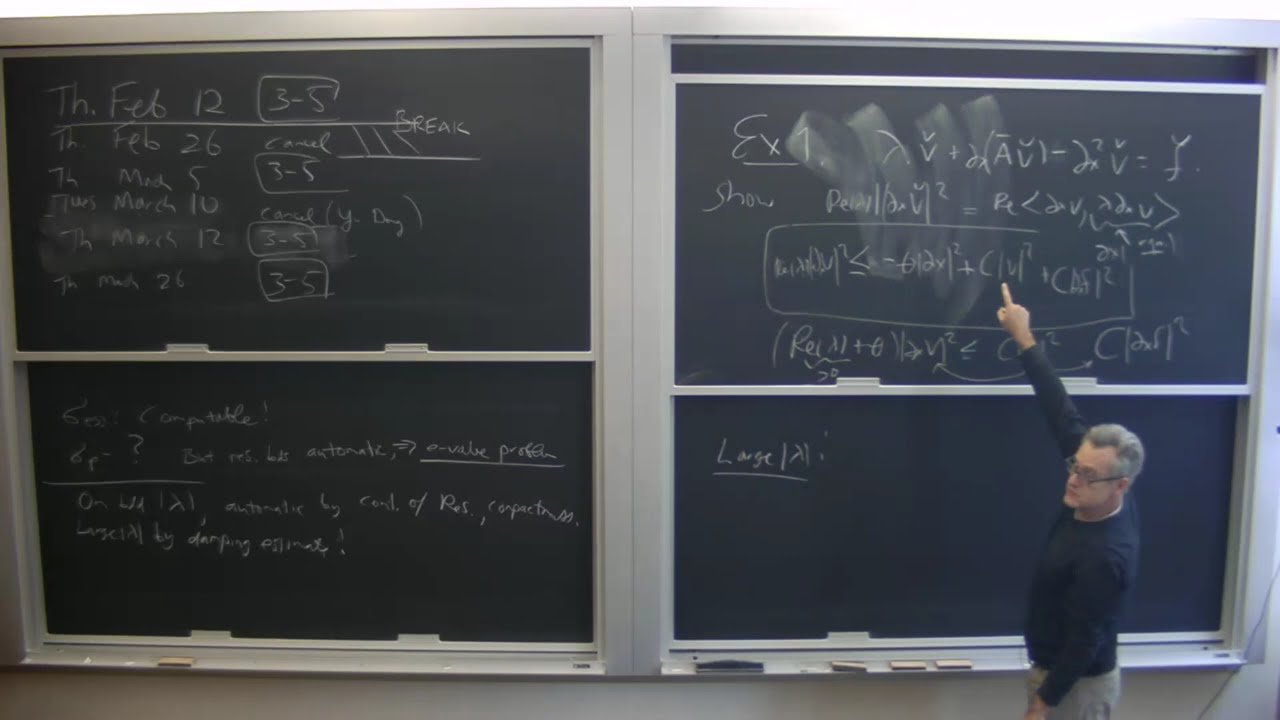 Th. Feb 12 3-5
Th. Feb 26 cancel BREAK
Th March 5 3-5
Tues March 10 cancel (Y. Day)
Th March 12 3-5
Th March 26 3-5
σess: Computable!
σp - ? But res. bds automatic, ⇒ e-value problem
On bdd |λ|, automatic by cont. of Res., compactness.
Large |λ| by damping estimate!
Ex 1. λ v̌ + ∂x(Āv̌) - ∂x² v̌ = f.
Show Re(λ)|∂x v̌|² = Re <∂x v, λ∂x v>
≤ - θ|∂x|² + C|v|² + C|∂xf|²
(Re(λ) + θ)|∂x v|² ≤ C|∂xf|²
>0
Large |λ|: